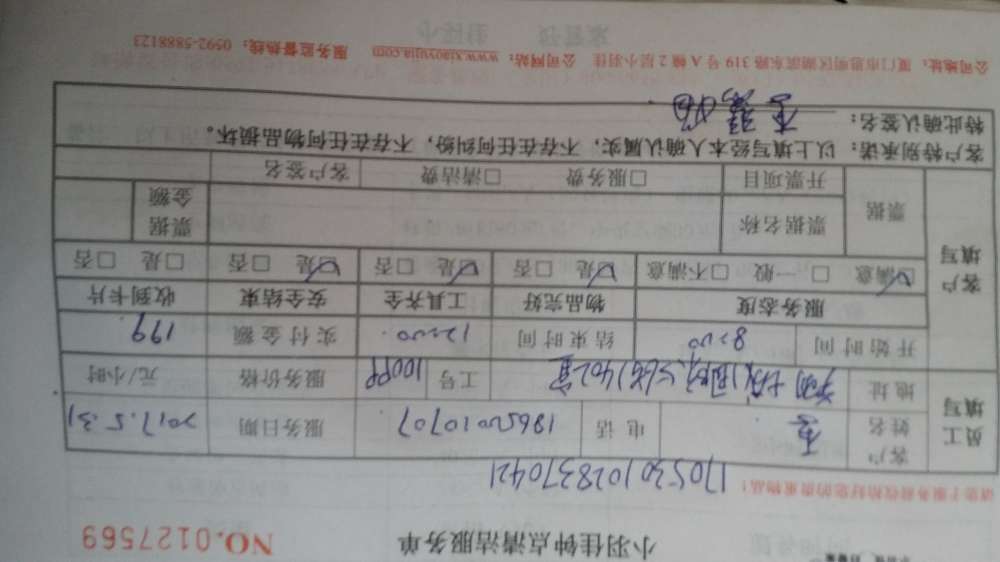 小羽佳钟点清洁服务单 NO.0127569
请您于服务前收拾好您的贵重物品！ 1705301028370421
员工填写
客户姓名 电话 18650010707 服务日期 2017.5.31
地址 工号 服务价格 元/小时
开始时间 8:00 结束时间 12:00 实付金额 199
客户填写
服务态度 物品完好 工具齐全 安全结束 收到卡片
☑满意 □一般 □不满意 ☑是 □否 ☑是 □否 ☑是 □否 □是 □否
票据 票据名称 票据金额
开票项目 □服务费 □清洁费 客户签名
客户特别承诺：以上填写经本人确认属实，不存在任何纠纷，不存在任何物品损坏。
特此确认签名：
公司地址：厦门市思明区湖滨东路 319 号 A 幢 2 层小羽佳 公司网站：www.xiaoyujia.com 服务监督热线：0592-5888123